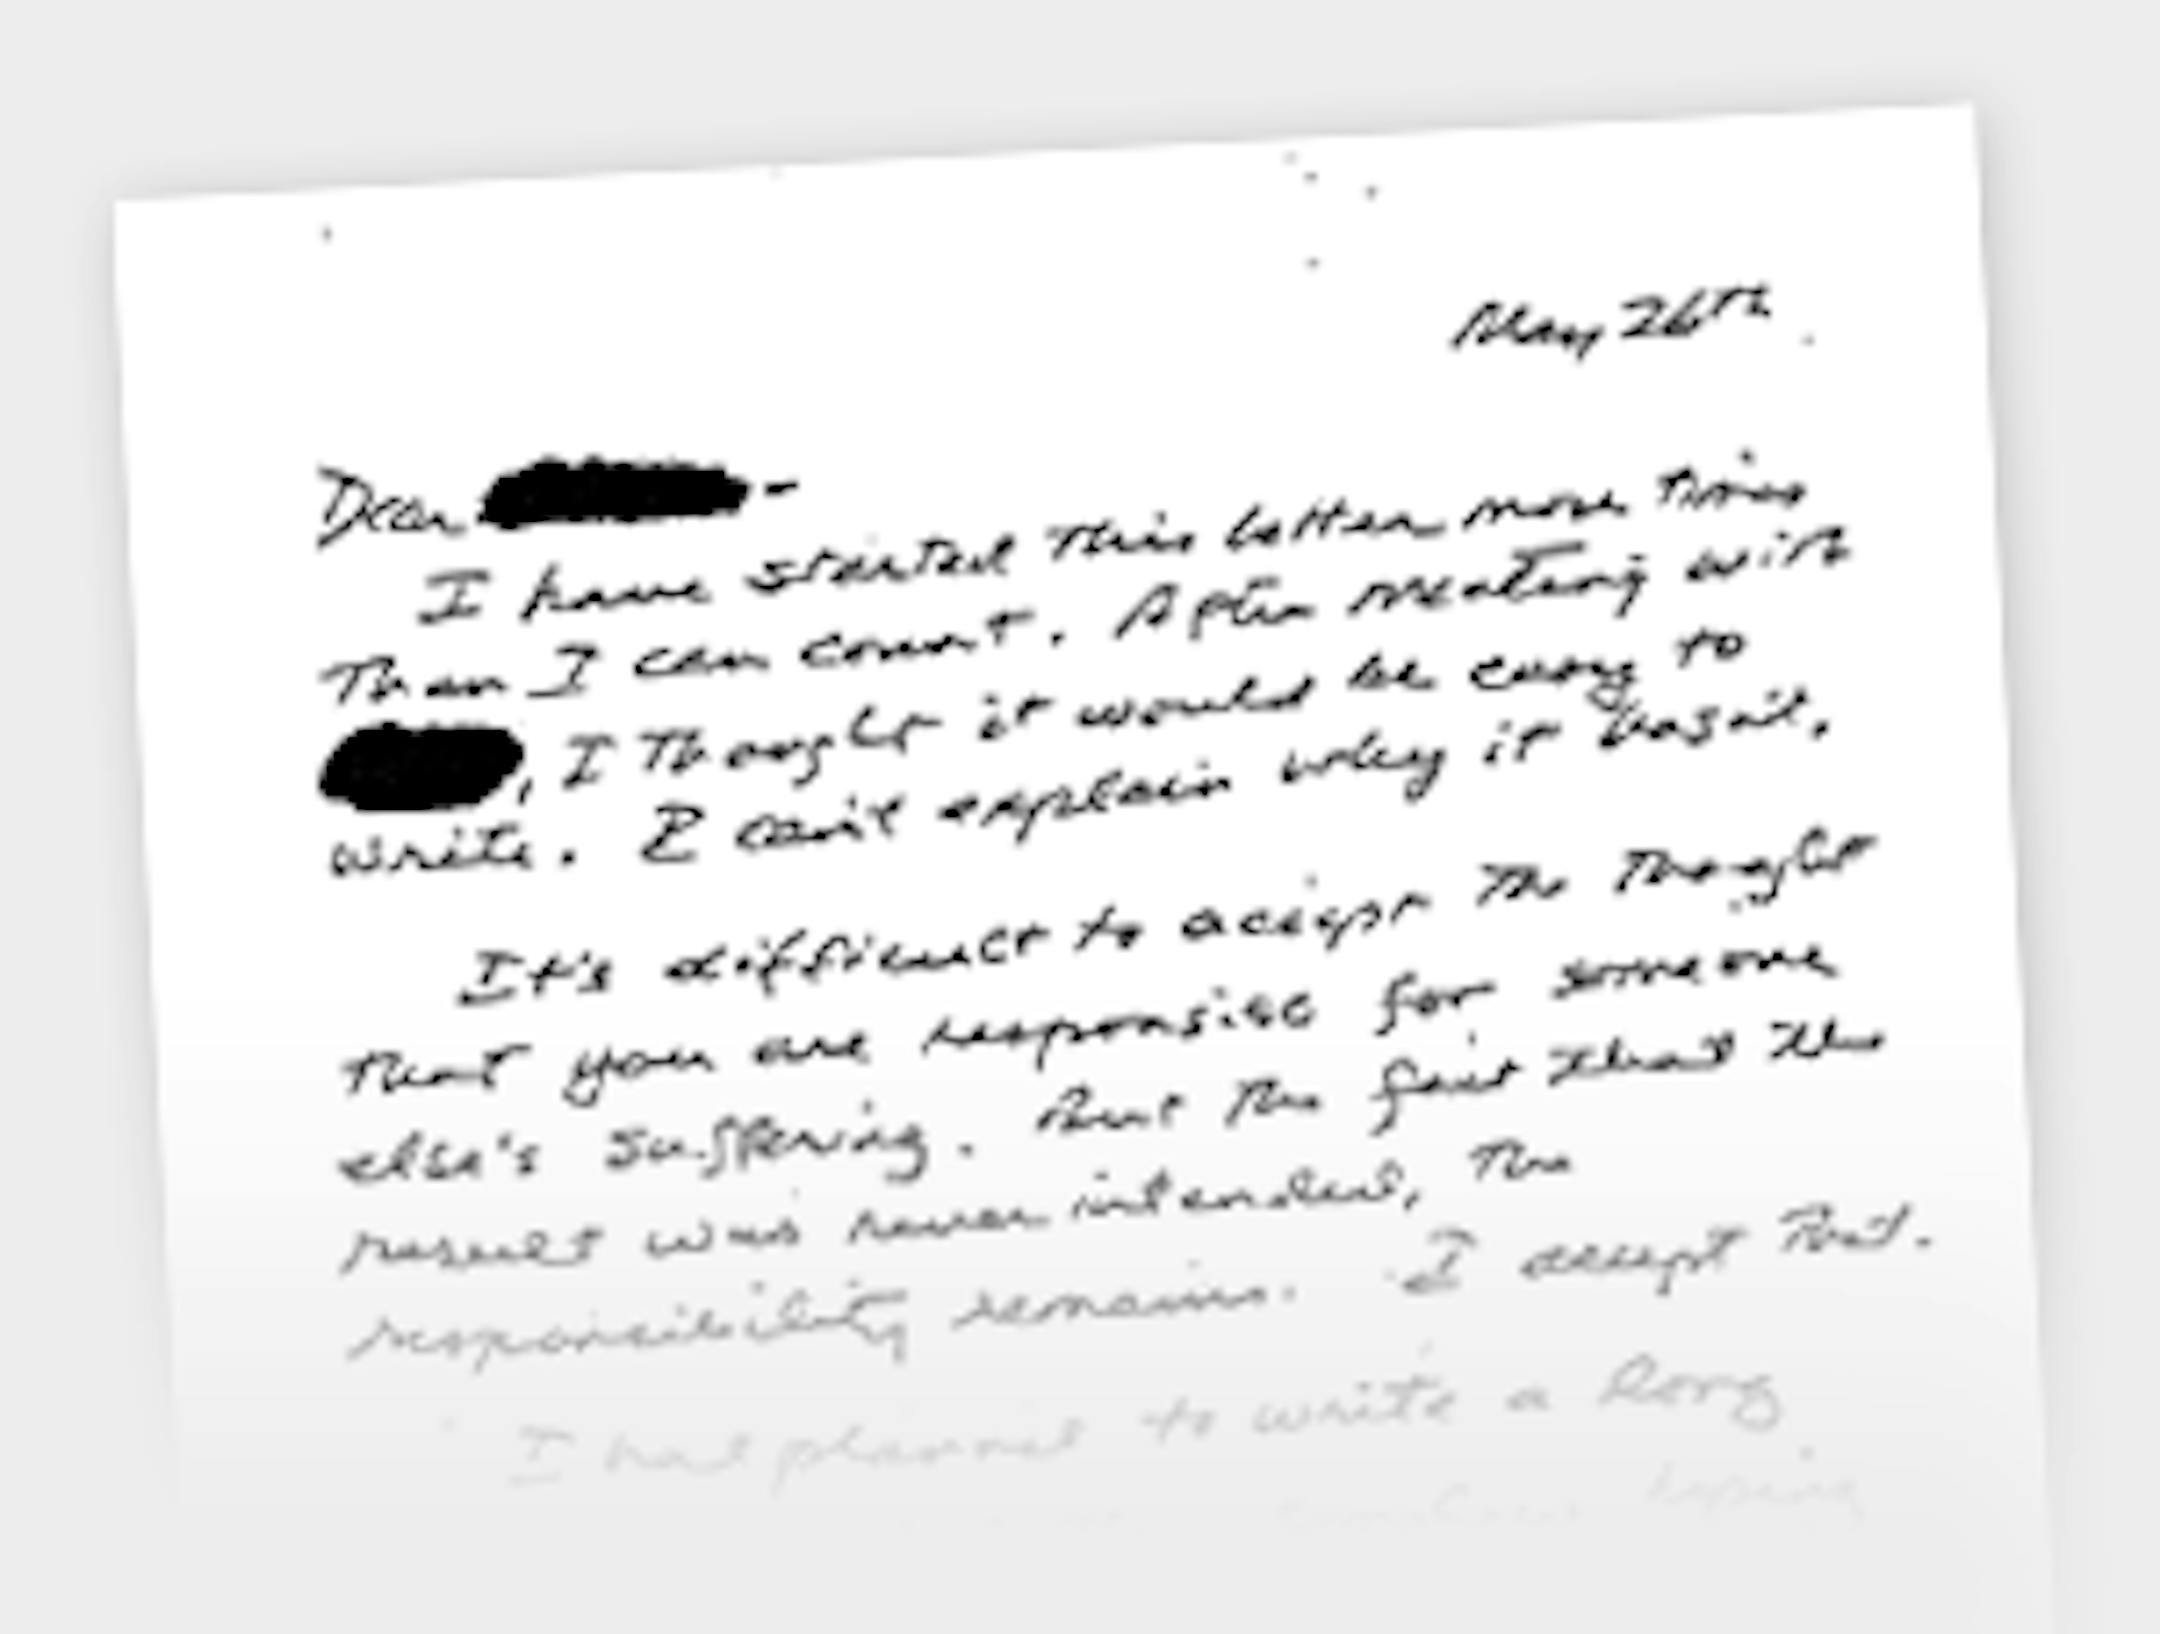 May 26th
Dear
I have started this letter more times
than I can count. After meeting with
, I thought it would be easy to
write. I can't explain why it hasn't.
It's difficult to accept the thought
that you are responsible for someone
else's suffering. But the fact that the
result was never intended, the
responsibility remains. I accept that.
I had planned to write a long
hoping